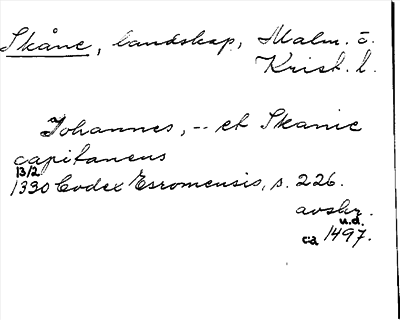 Skåne, landskap, Malm. ö.
Krist. l.
Johannes, -- et Skanie
capitaneus
13/2
1330 Codex Esromensis, s. 226.
avskr.
u.d.
ca 1497.